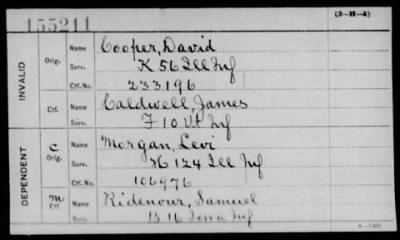 155211
(3-H-4)
INVALID
Orig. Name Cooper, David
Serv. K 56 Ill Inf
Ctf. No. 233196
Ctf. Name Caldwell, James
Serv. F 10 Vt Inf
DEPENDENT
C Orig. Name Morgan, Levi
Serv. H 124 Ill Inf
Ctf. No. 106976
M Ctf. Name Ridenour, Samuel
Serv. B 16 Iowa Inf